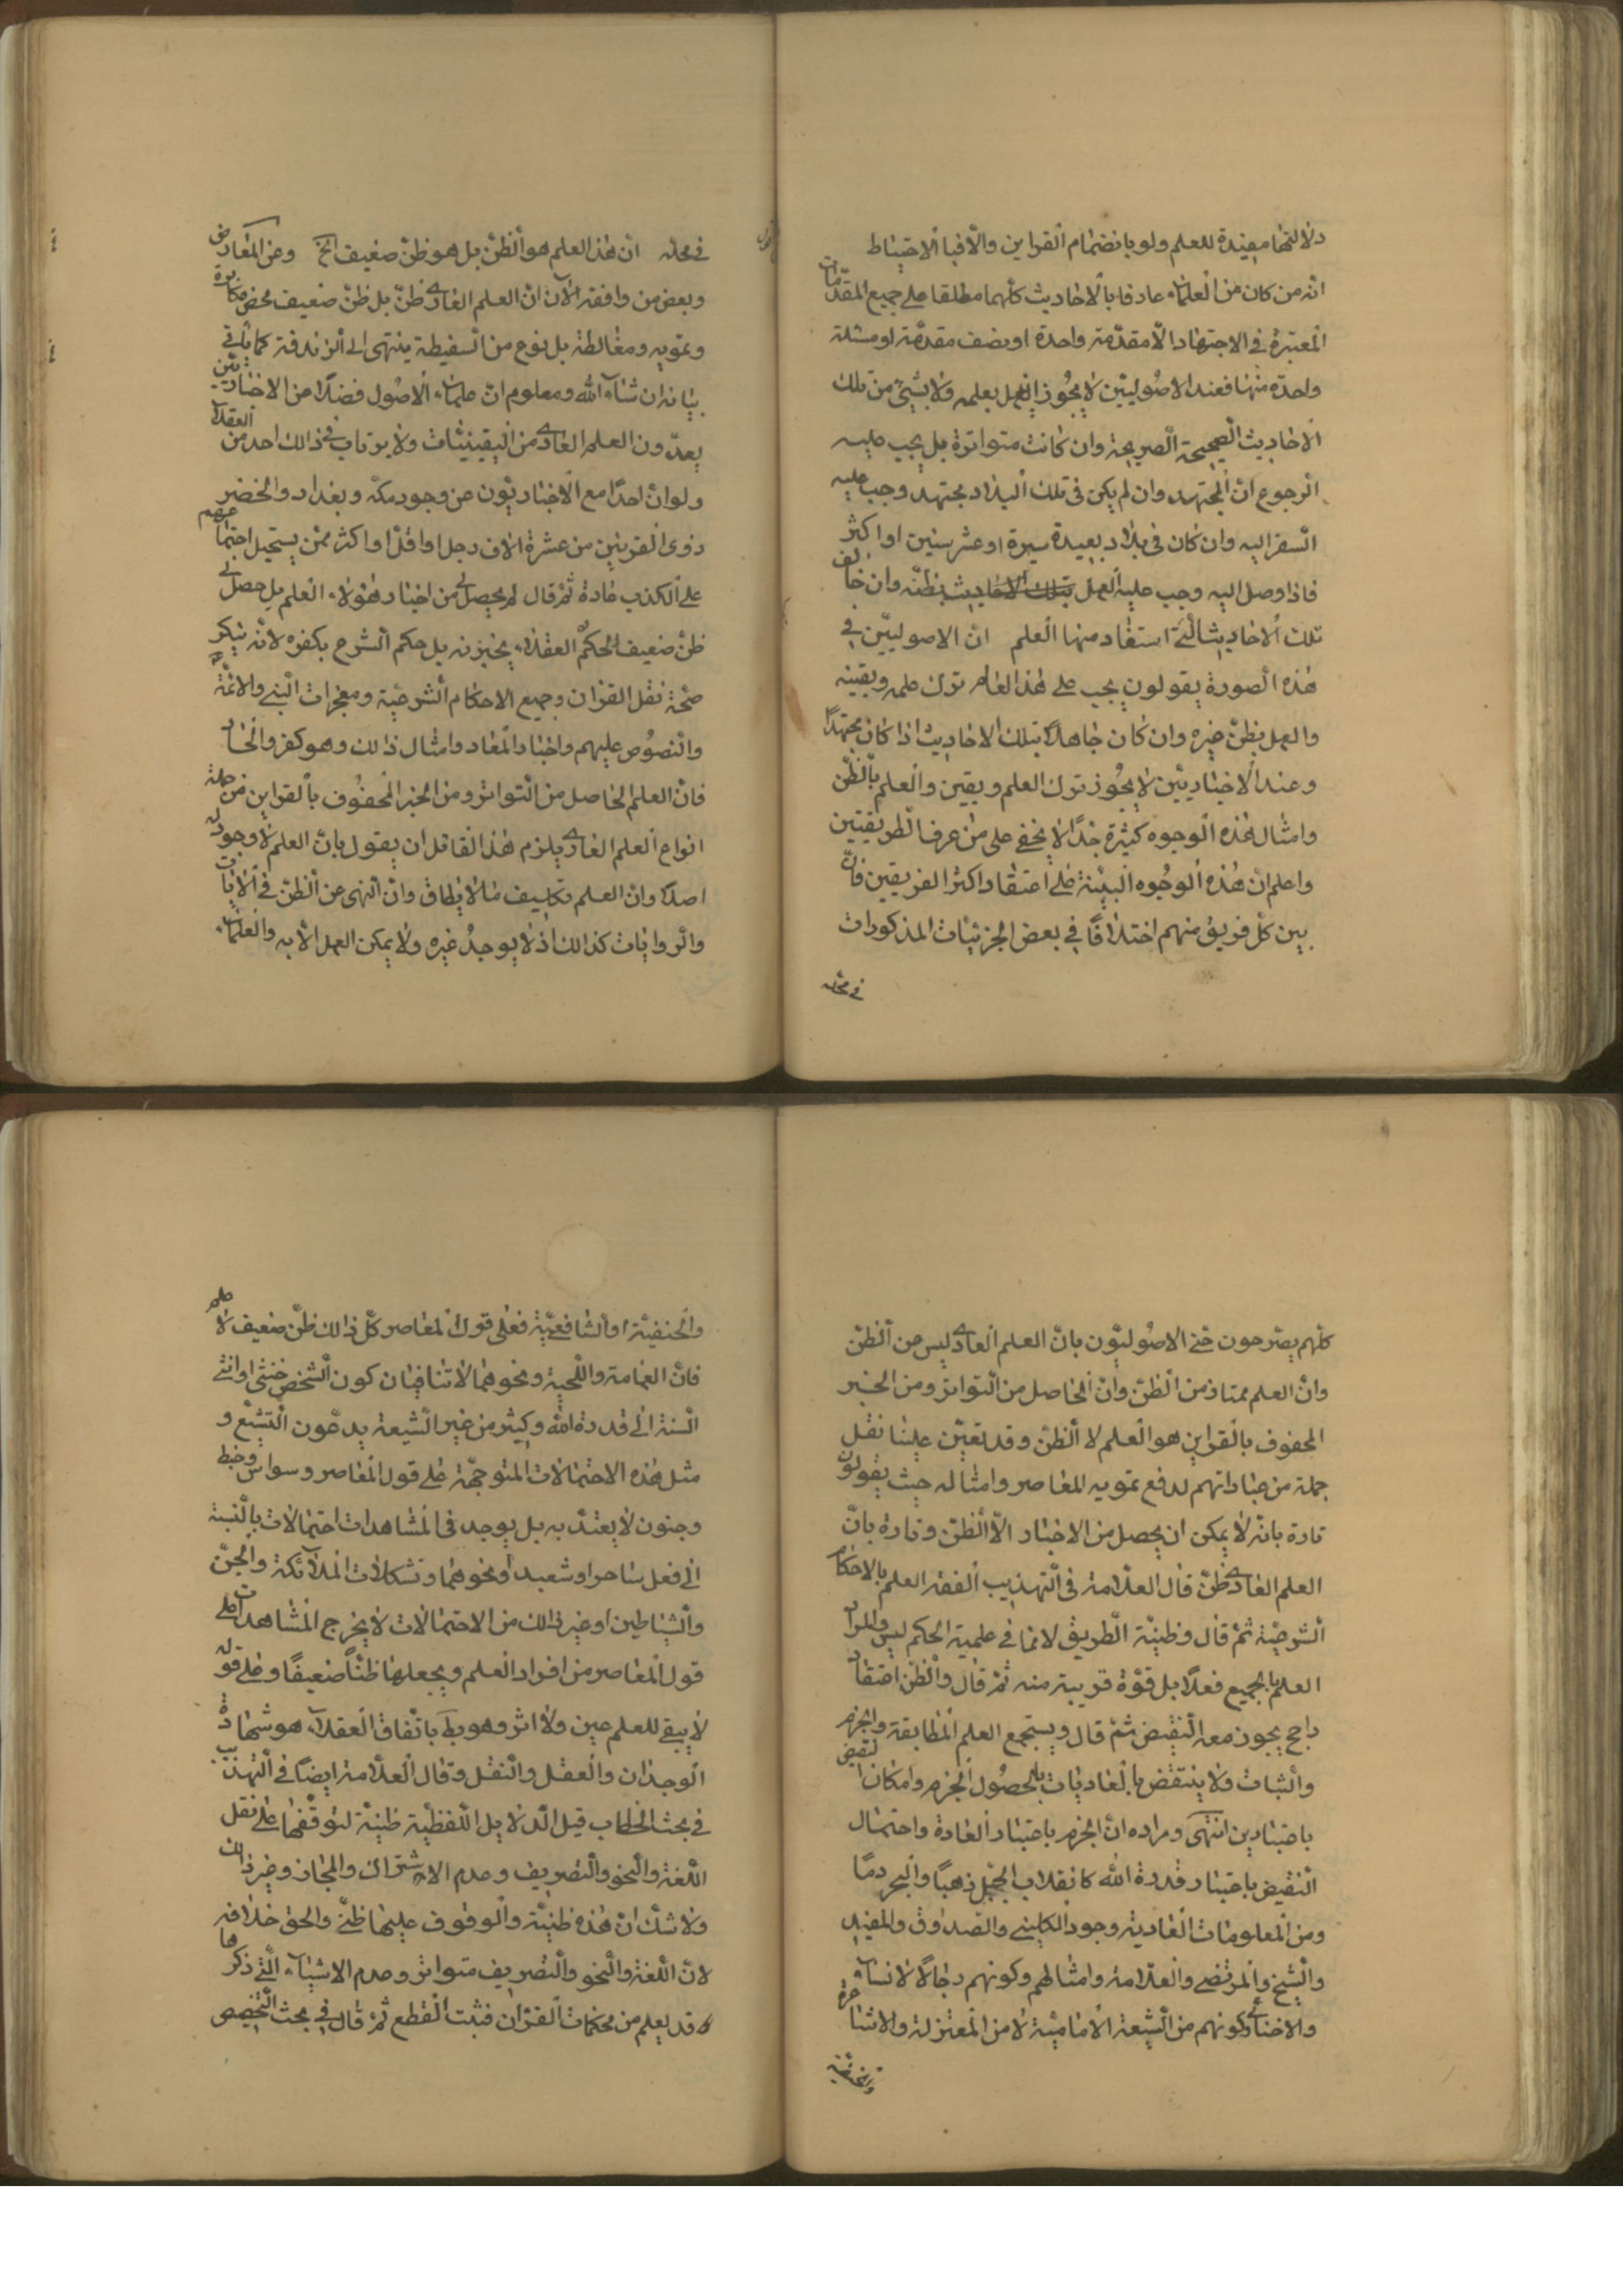 دلالتها مفيدة للعلم ولو بانضمام القراين والّا فبا الاحتياط
انّه من كان من العلماء عارفا بالاحاديث كلّهما مطلقا على جميع المقدّمات
المعتبرة في الاجتهاد الّا مقدّمة واحدة او نصف مقدّمة او مسئلة
واحدة منها فعند الاصوليّين لا يجوز العمل بعلمه ولا بشيئ من تلك
الاحاديث الصحيحة الصريحة وان كانت متواترة بل يجب عليه
الرجوع انّ المجتهد وان لم يكن في تلك البلاد مجتهد وجب عليه
السفر اليه وان كان في بلاد بعيدة مسيرة او عشر سنين او اكثر
فاذا وصل اليه وجب عليه العمل بتلك الاحاديث بظنّه وان خالف
تلك الاحاديث الّتي استفاد منها العلم انّ الاصوليّين في
هذه الصورة يقولون يجب على هذا العالم ترك علمه ويقينه
والعمل بظنّ غيره وان كان جاهلا بتلك الاحاديث اذا كان مجتهدًا
وعند الاخباريّين لا يجوز ترك العلم ويقين والعلم بالظنّ
وامثال هذه الوجوه كثيرة جدًّا لا يخفى على من عرف الطريقتين
واعلم انّ هذه الوجوه البيّنة على اعتقاد اكثر الفريقين فانّ
بين كلّ فريق منهم اختلافًا في بعض الجزئيات المذكورات
في محلّه
في محلّه انّ هذ العلم هو الظنّ بل هو ظنّ ضعيف الخ وعن المعارض
وبعض من وافقه الآن انّ العلم العادي ظنّ بل ظنّ ضعيف محض مكابرة
وتمويه ومغالطة بل نوع من السفيطة ينتهى الى الزندقة كما ياتي
بيانه ان شاء الله ومعلوم انّ علماء الاصول فضلًا من الاخباريّين
يعدّون العلم العادي من اليقينيّات ولا يرتاب في ذالك احد من العقلاء
ولو انّ احدًا مع الاخباريّون عن وجود مكّة وبغداد والخضر
وذوى القرنين من عشرة الاف رجل او اقلّ او اكثر ممّن يستحيل اجتماعهم
على الكذب عادة ثمّ قال لم يحصل لي من اخبار هؤلاء العلم بل حصل لي
ظنّ ضعيف لحكم العقلاء بل حكم الشرع بكفره لانّه ينكر
صحّة نقل القران وجميع الاحكام الشرعيّة ومعجزات النبي والائمّة
والنصوص عليهم واخبار المعاد وامثال ذالك وهو كفر والحاد
فانّ العلم الحاصل من التواتر ومن الخبر المحفوف بالقراين من جملة
انواع العلم العادي يلزم هذا القائل ان يقول بانّ العلم لا وجود له
اصلًا وانّ العلم تكليف ما لا يطاق وانّ النهى عن الظنّ في الايات
والروايات كذالك اذ لا يوجد غيره ولا يمكن العمل الّا به والعلماء
كلّهم يصرحون حتى الاصوليّون بانّ العلم العادي ليس من الظنّ
وانّ العلم ممتاز من الظنّ وانّ الحاصل من التواتر ومن الخبر
المحفوف بالقراين هو العلم لا الظنّ وقد تعيّن علينا نقل
جملة من عباراتهم لدفع تمويه المعاصر وامثاله حيث يقولون
تارة بانّه لا يمكن ان يحصل من الاخبار الّا الظنّ وتارة بانّ
العلم العادي ظنّ قال العلّامة في التهذيب الفقه العلم بالاحكام
الشرعيّة ثمّ قال وظنيّة الطريق لا تنافي علمية الحكم ليس والمراد
العلم بالجميع فعلًا بل قوّة قريبة منه ثمّ قال والظنّ اعتقاد
راجح يجوز معه النقيض ثمّ قال ويستجمع العلم المطابقة والجزم
والثبات ولا ينتقض بالعاديات بالحصول الجزم وامكان النقيض
باعتبارين انتهى ومراده انّ الجزم باعتبار العادة واحتمال
النقيض باعتبار قدرة الله كانقلاب الجبل ذهبًا والبحر دمًا
ومن المعلومات العادية وجود الكليني والصدوق والمفيد
والشيخ والمرتضى والعلّامة وامثالهم وكونهم رجالًا لا نساء
والاخنا في كونهم من الشيعة الاماميّة لا من المعتزلة والاشاعرة
والحنفيّة
والحنفيّة او الشافعيّة فعلى قول المعاصر كلّ ذالك ظنّ ضعيف لا علم
فانّ العمامة واللّحية ونحوهما لا تنافيان كون الشخص خنثى او انثى
النسبة الى قدرة الله وكثير من غير الشيعة يدعون التشيّع و
مثل هذه الاحتمالات المتوجهة على قول المعاصر وسواس وخبط
وجنون لا يعتدّ به بل يوجد في المشاهدات احتمالات بالنسبة
الى فعل ساحر او شعبد او نحوهما وتشكلات الملائكة والجنّ
والشياطين او غير ذالك من الاحتمالات لا يخرج المشاهدات على
قول المعاصر من افراد العلم ويجعلها ظنًّا ضعيفًا وعلى قوله
لا يبقى للعلم عين ولا اثر وهو بط باتّفاق العقلاء هو شهادة
الوجدان والعقل والنقل وقال العلّامة ايضًا في التهذيب
في بحث الخطاب قيل الدلايل اللفظيّة ظنيّة لتوقّفها على نقل
اللّغة والنحو والتصريف وعدم الاشتراك والمجاز وغير ذالك
ولا شكّ انّ هذه ظنيّة والوقوف عليها ظنّي والحق خلافه
لانّ اللّغة والنحو والتصريف متواتر وعدم الاشياء الّتي ذكرها
قد يعلم من محكمات القران فثبت القطع ثمّ قال في بحث التخصيص